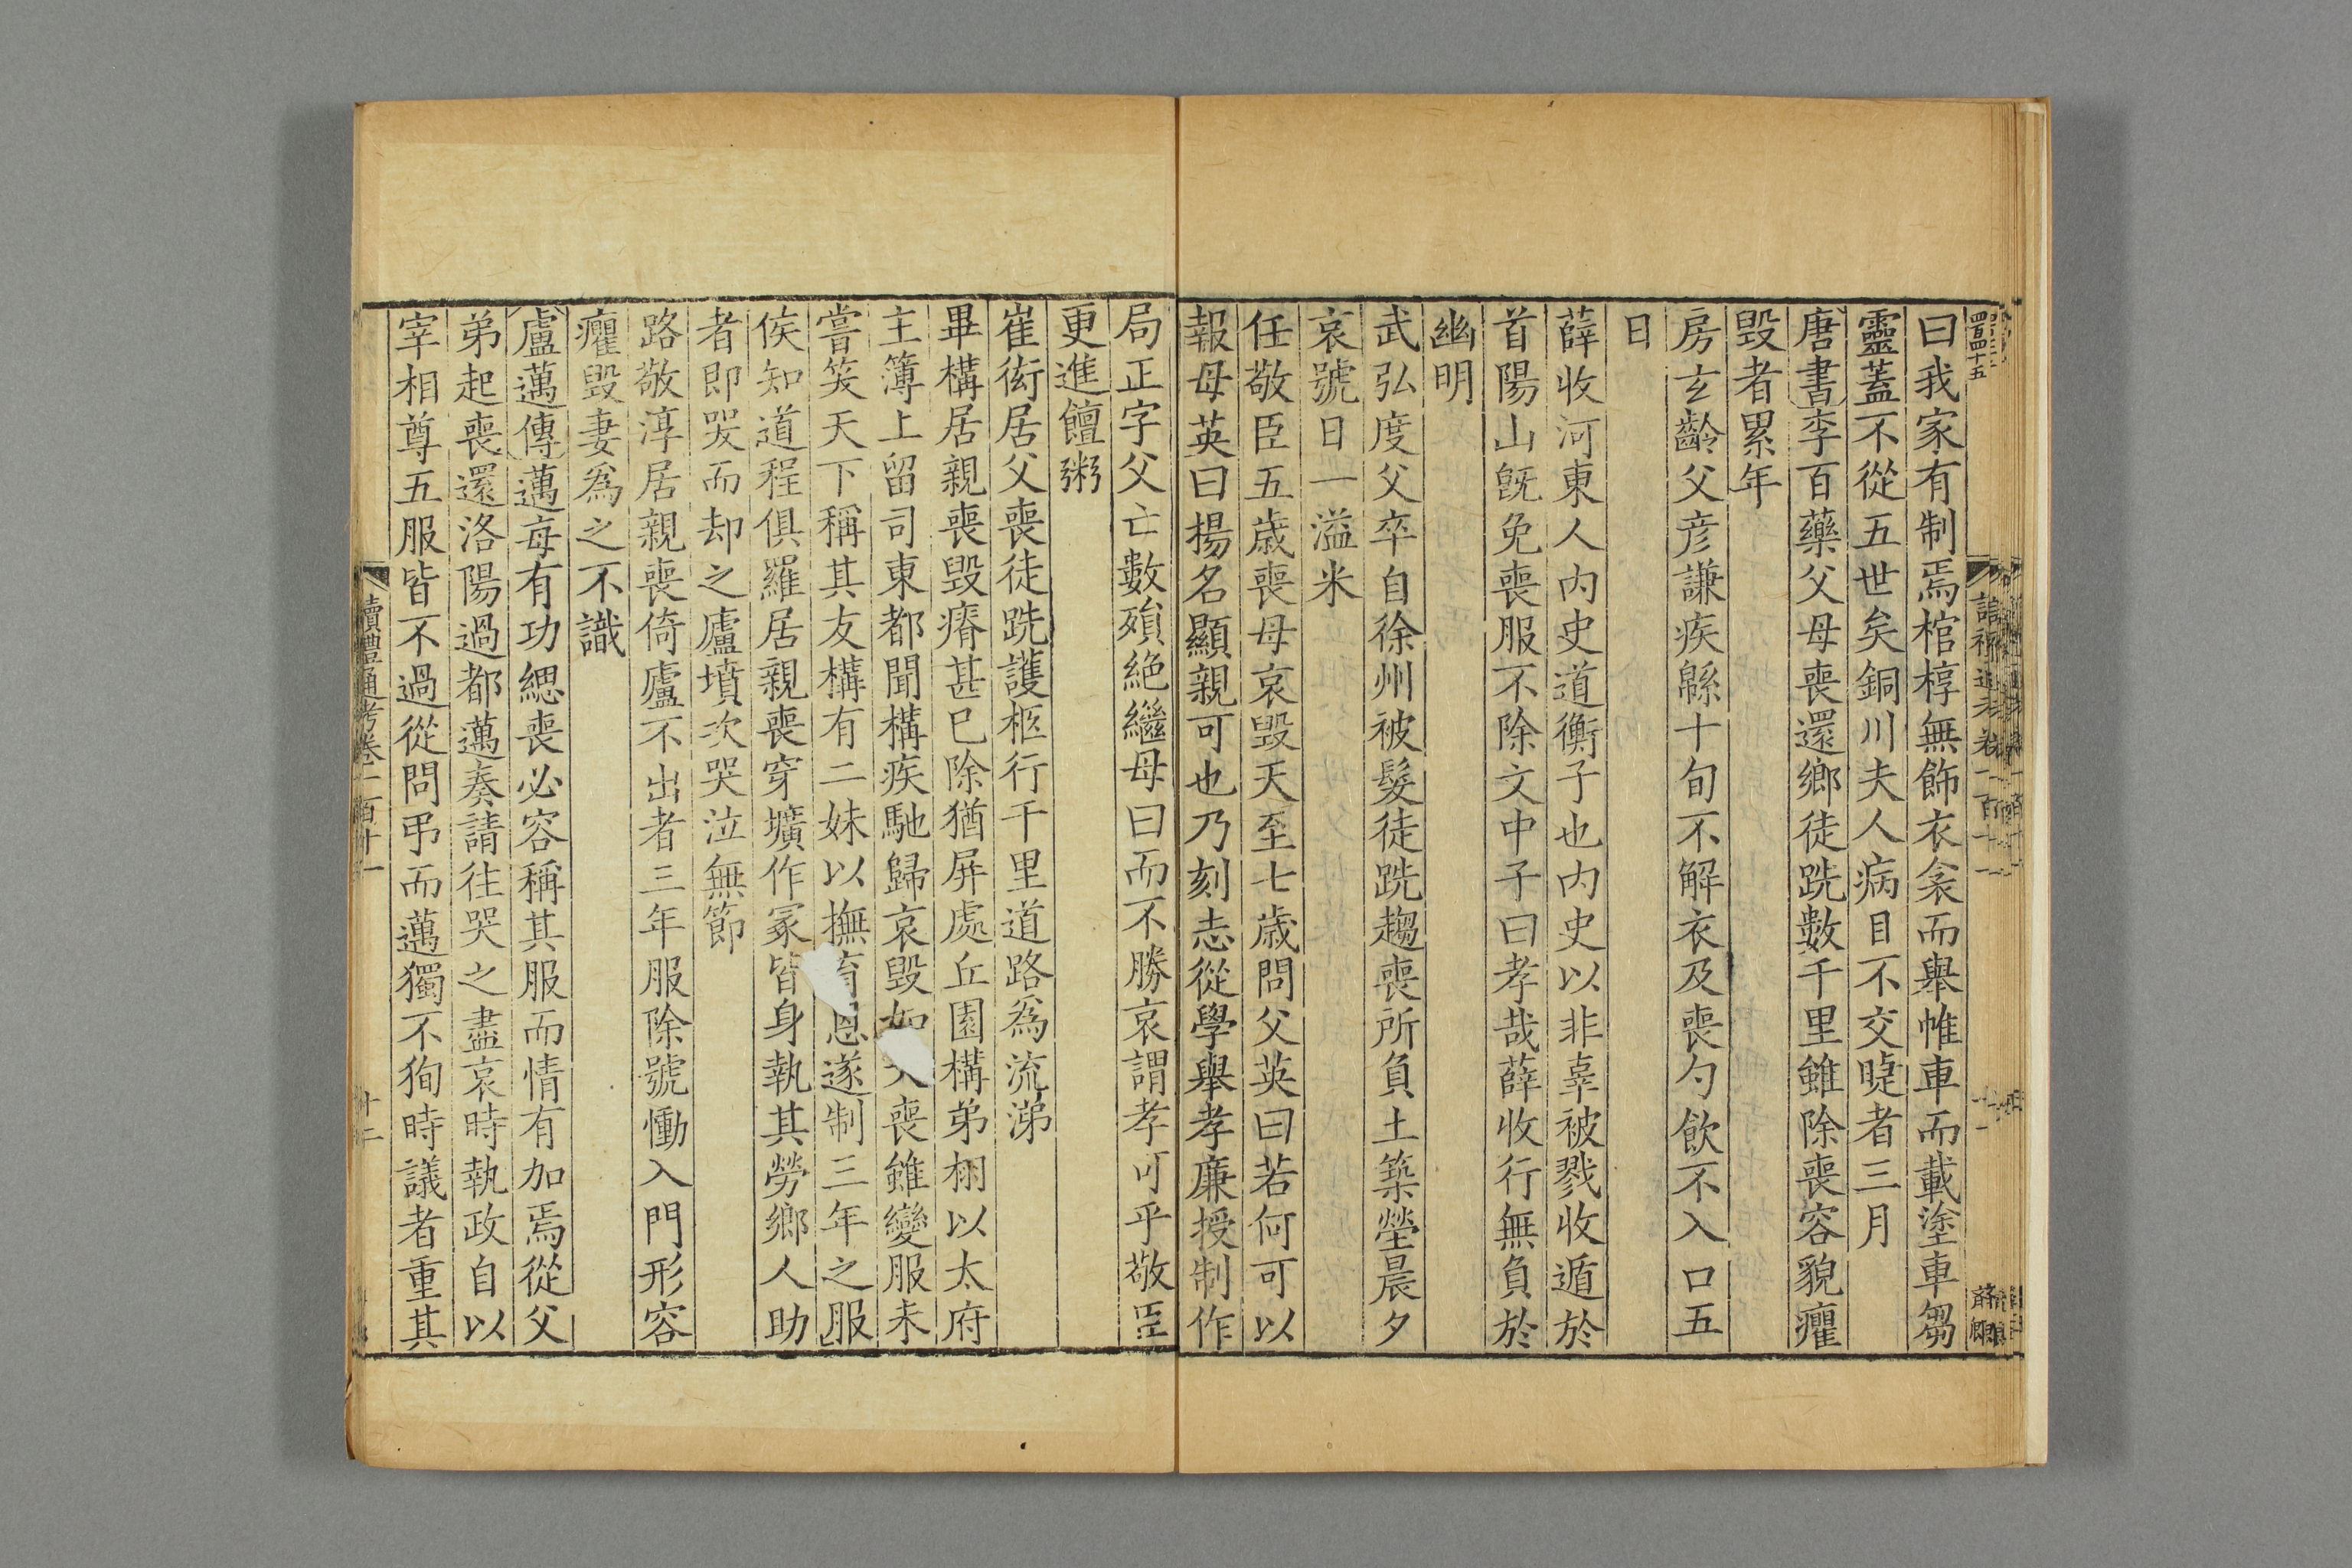 曰我家有制焉棺椁無飾衣衾而舉帷車而載塗車芻
靈蓋不從五世矣銅川夫人病目不交睫者三月
唐書李百藥父母喪還鄉徒跣數千里雖除喪容貌癯
毀者累年
房玄齡父彦謙疾緜十旬不解衣及喪勺飲不入口五
日
薛收河東人内史道衡子也内史以非辜被戮收遁於
首陽山旣免喪服不除文中子曰孝哉薛收行無負於
幽明
武弘度父卒自徐州被髮徒跣趨喪所負土築塋晨夕
哀號日一溢米
任敬臣五歳喪母哀毀天至七歳問父英曰若何可以
報母英曰揚名顯親可也乃刻志從學舉孝廉授制作
局正字父亡數殞絶繼母曰而不勝哀謂孝可乎敬臣
更進饘粥
崔衒居父喪徒跣護柩行千里道路爲流涕
畢構居親喪毀瘠甚巳除猶屏處丘園構弟栩以太府
主簿上留司東都聞構疾馳歸哀毀如喪雖變服未
嘗笑天下稱其友構有二妹以撫育恩遂制三年之服
侯知道程俱羅居親喪穿壙作冢皆身執其勞鄉人助
者即哭而却之廬墳次哭泣無節
路敬淳居親喪倚廬不出者三年服除號慟入門形容
癯毀妻爲之不識
盧邁傳邁每有功緦喪必容稱其服而情有加焉從父
弟起喪還洛陽過都邁奏請往哭之盡哀時執政自以
宰相尊五服皆不過從問弔而邁獨不狥時議者重其
讀禮通考卷一百十一
十二